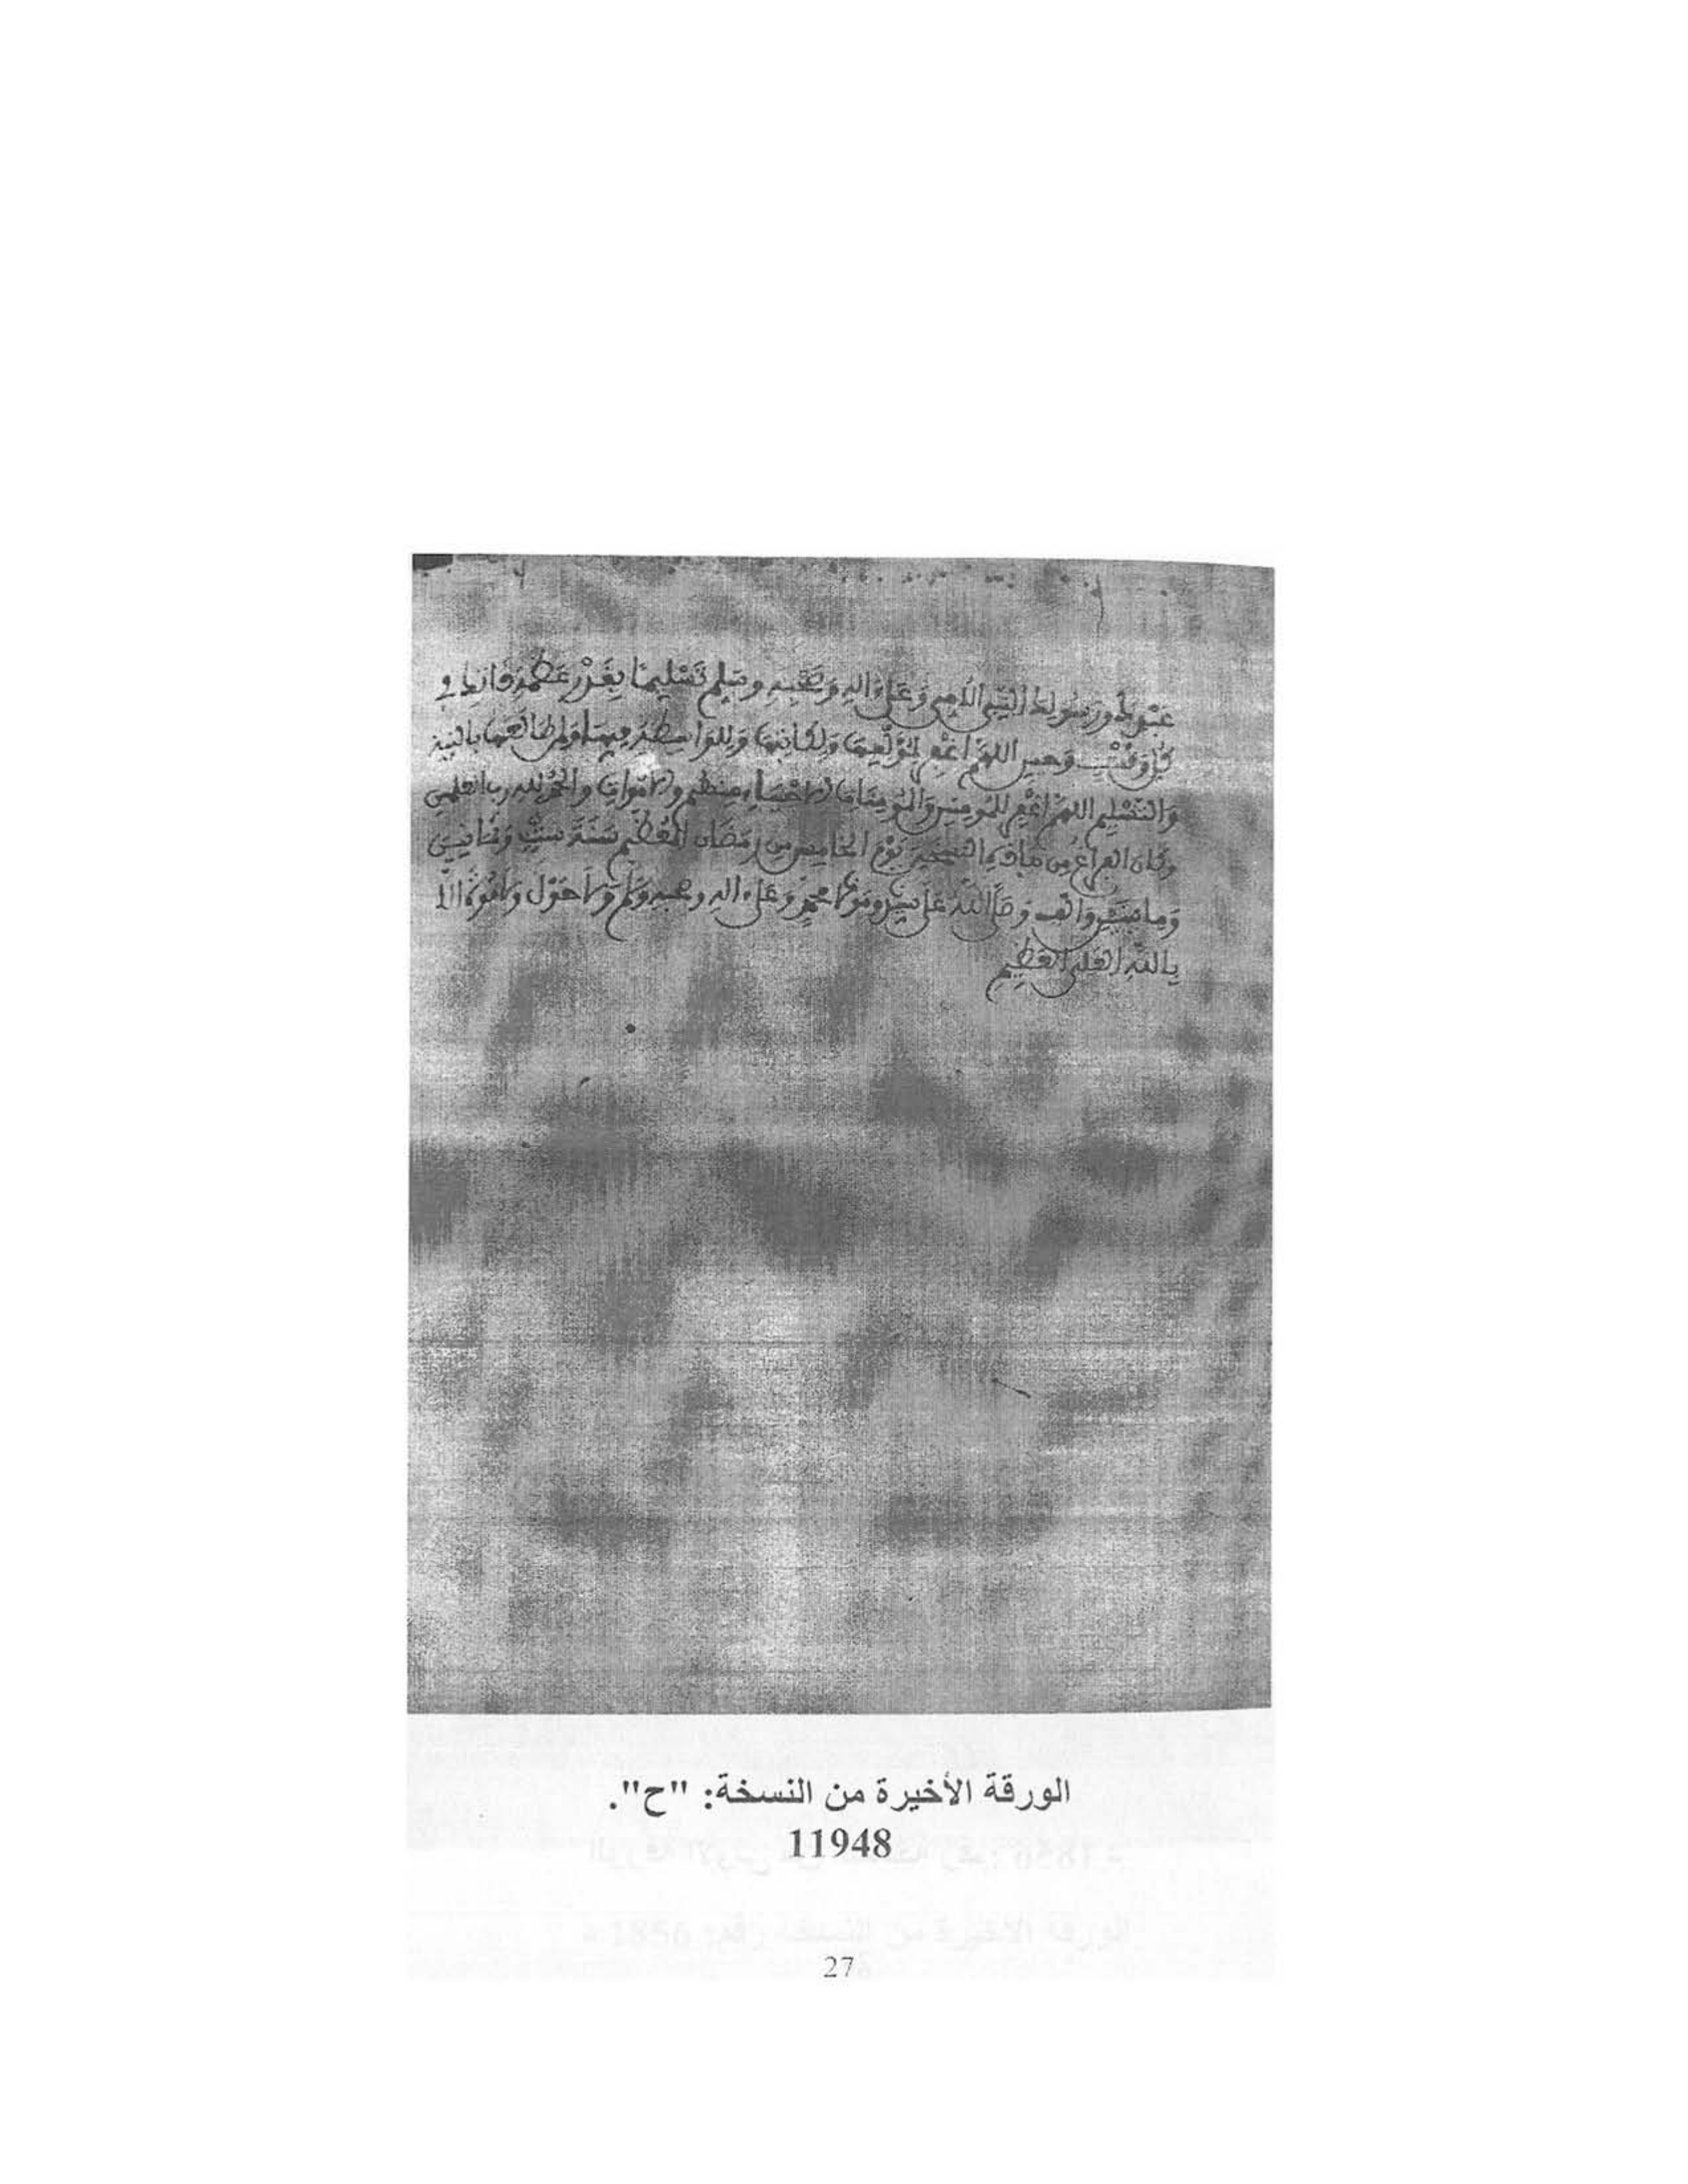 عبدك ورسولك النبي الأمي وعلى اله وصحبه وسلم تسليما بقدر عظمة ذاتك في
كل وقت وحين اللهم اغفر لمؤلفها ولكاتبها وللواسطة فيها ولمطالعها
والتسليم اللهم اغفر للمومنين والمومنات الاحياء منهم والاموات والحمد لله رب العلمين
وكان الفراغ من هاذه النسخة يوم الخامس من رمضان المعظم سنة ست وثمانين
ومايتين والف وصلى الله على سيدنا ومولانا محمد وعلى اله وصحبه وسلم ولا حول ولا قوة الا
بالله العلي العظيم
الورقة الأخيرة من النسخة: "ح".
11948
27